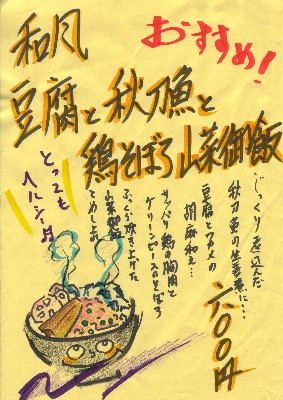 おすすめ!
和風
豆腐と秋刀魚と
鶏そぼろ山菜御飯
とっても
ヘルシー
じっくり煮込んだ
秋刀魚の生姜煮に…
豆腐とワカメの
胡麻和え…
サッパリ鶏の胸肉と
グリーンピースのそぼろ
ふっくら炊き上げた
山菜御飯
六〇〇円